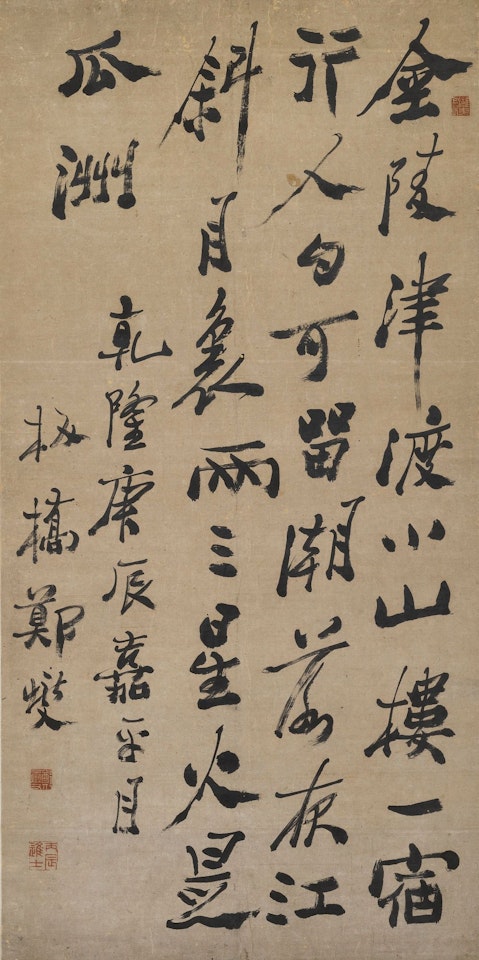 金陵津渡小山樓一宿
行人自可留潮落夜江
斜月裏兩三星火是
瓜洲
乾隆庚辰嘉平月
板橋鄭燮
丙辰進士